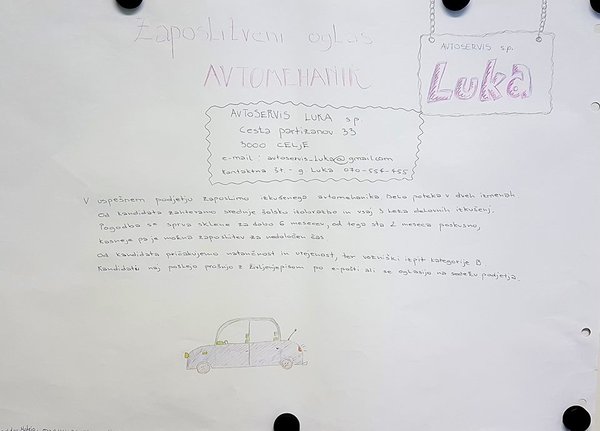 Zaposlitveni oglas
AVTOMEHANIK
AVTOSERVIS s.p.
Luka
AVTOSERVIS LUKA s.p
Cesta partizanov 33
3000 CELJE
e-mail : avtoservis_luka@gmail.com
Kontaktna št - g Luka 070-554-455
V uspešnem podjetju zaposlimo izkušenega avtomehanika Delo poteka v dveh izmenah
Od kandidata zahtevamo srednje šolsko izobrazbo in vsaj 3 leta delovnih izkušenj.
Pogodba se sprva sklene za dobo 6 mesecev, od tega sta 2 meseca poskusno,
kasneje pa je možna zaposlitev za nedoločen čas
Od kandidata pričakujemo natančnost in urejenost, ter vozniški izpit kategorije B
Kandidati naj pošljejo prošnjo z življenjepisom po e-pošti ali se oglasijo na sedežu podjetja.